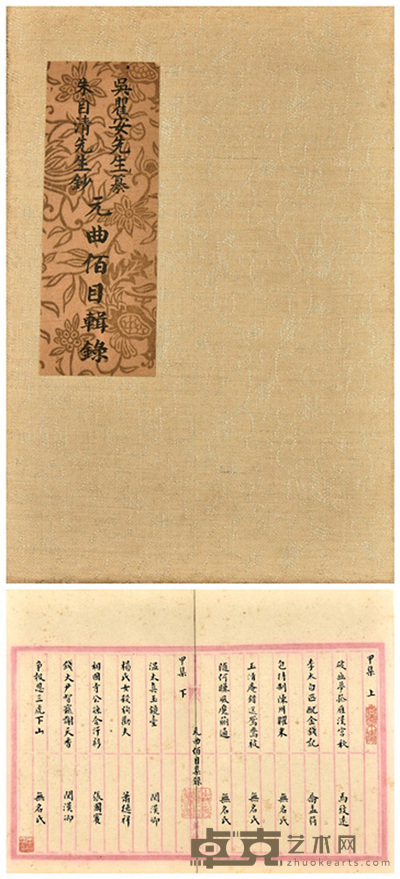 吳瞿安先生纂
朱自清先生鈔
元曲佰目輯錄
甲集 上
破幽夢孤雁漢宮秋 馬致遠
李太白匹配金錢記 喬孟符
包待制陳州糶米 無名氏
玉清庵錯送鴛鴦被 無名氏
隨何賺風魔蒯通 無名氏
元曲佰目集錄
甲集 下
溫太真玉鏡臺 關漢卿
楊氏女殺狗勸夫 蕭德祥
相國寺公孫合汗衫 張國賓
錢大尹智寵謝天香 關漢卿
爭報恩三虎下山 無名氏
卓克艺术网
www.zhuokearts.com